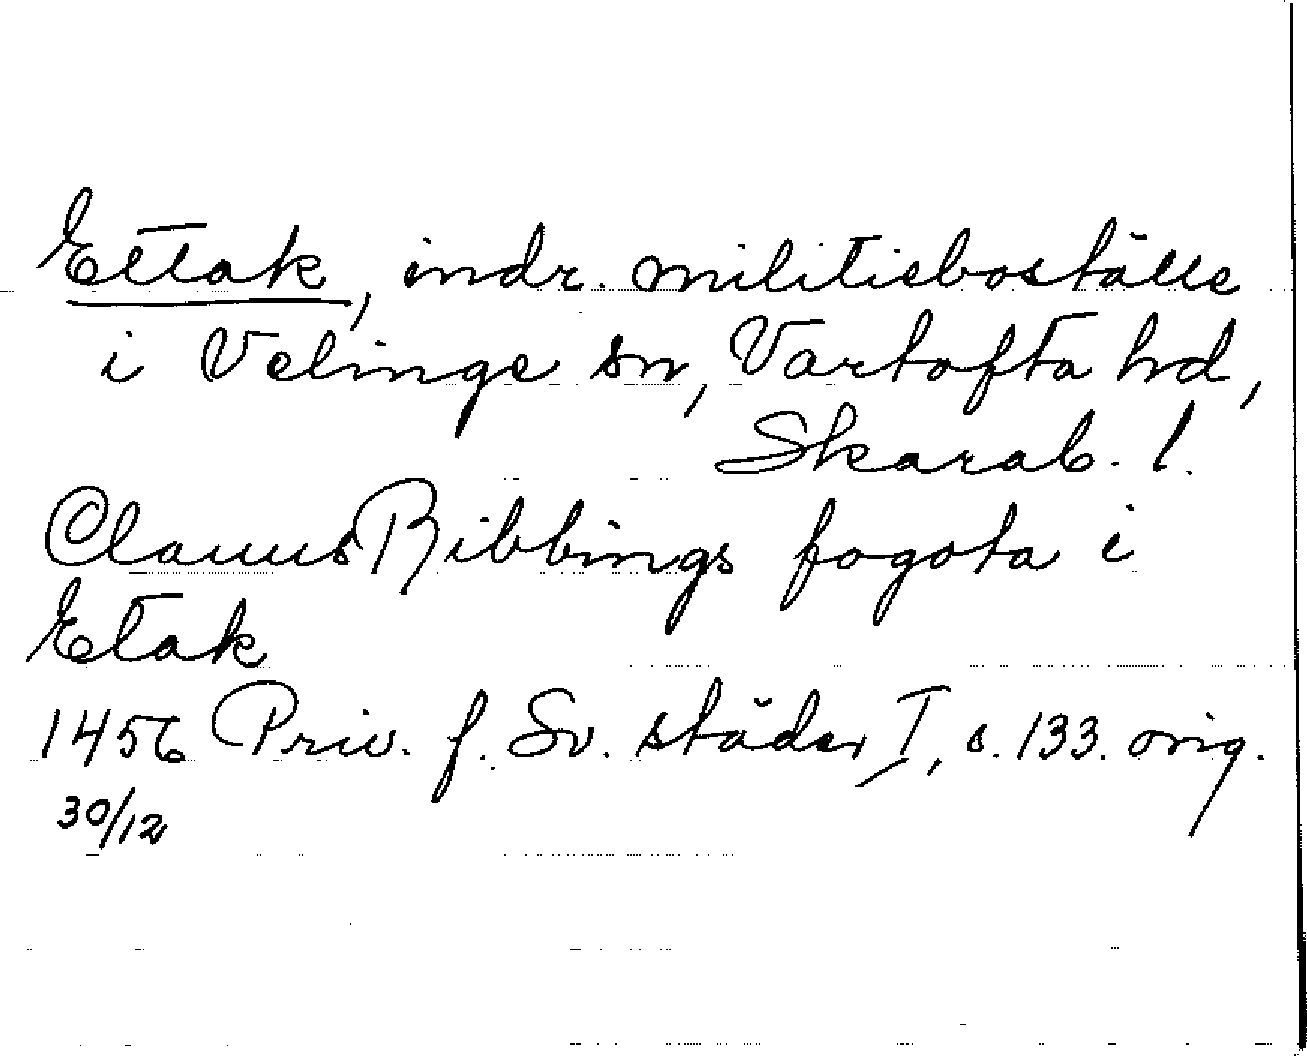 Ettak, indr. militieboställe
i Velinge sn, Vartofta hd,
Skarab. l.
Claus Ribbings fogota i
Etak
1456 Priv. f. Sv. städer I, s. 133. orig.
30/12